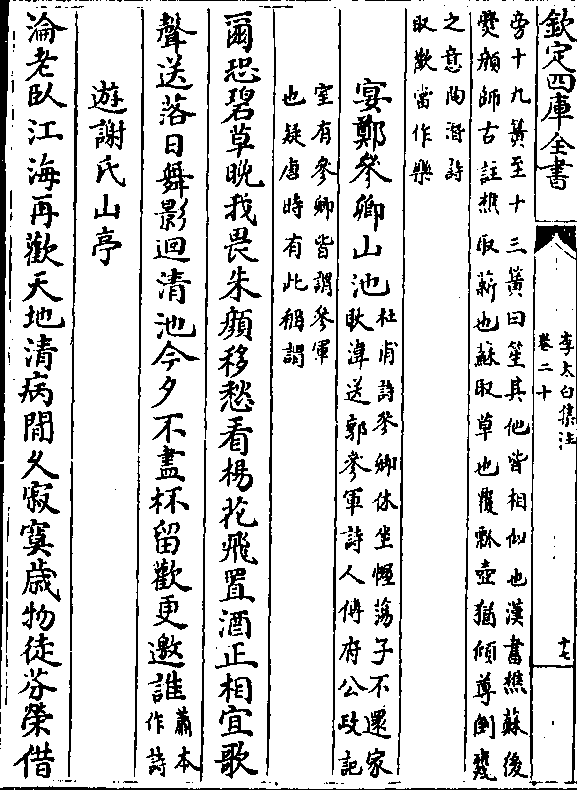 欽定四庫全書
李太白集注
卷二十
十七
旁十九簧至十三簧曰笙其他皆相似也漢書樵蘇後
爨顔師古註樵取薪也蘇取草也覆瓢壺猶傾尊倒甕
之意陶潛詩
取歡當作樂
宴鄭參卿山池
杜甫詩參卿休坐幄蕩子不還家
耿湋送郭參軍詩人傳府公政記
室有參卿皆謂參軍
也疑唐時有此稱謂
爾恐碧草晩我畏朱顔移愁看楊花飛置酒正相宜歌
聲送落日舞影迴清池今夕不盡杯留歡更邀誰
蕭本
作詩
遊謝氏山亭
淪老臥江海再歡天地清病閒久寂寞歳物徒芬榮借